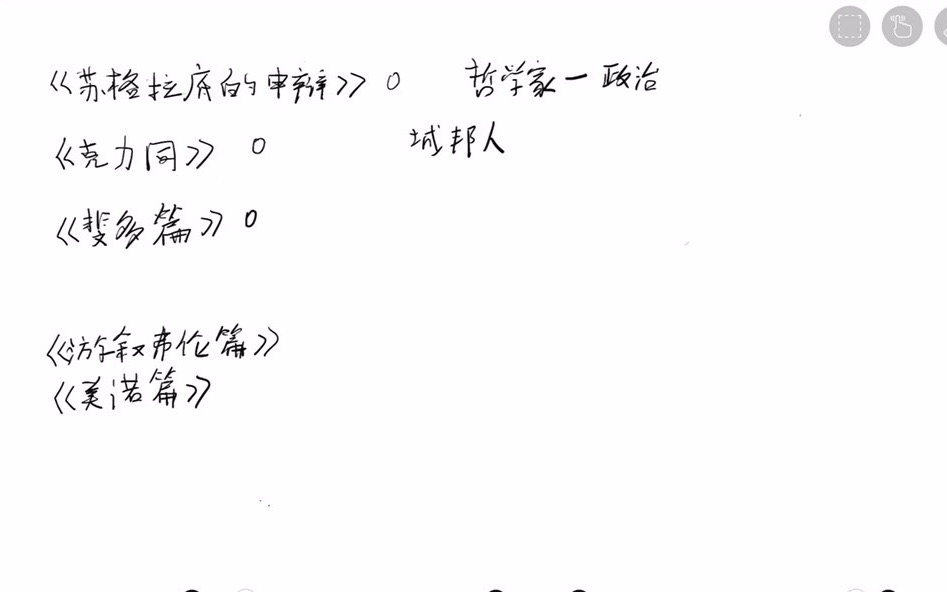 《苏格拉底的申辩》0 哲学家一政治
《克力同》 0 城邦人
《斐多篇》0
《游叙弗伦篇》
《美诺篇》